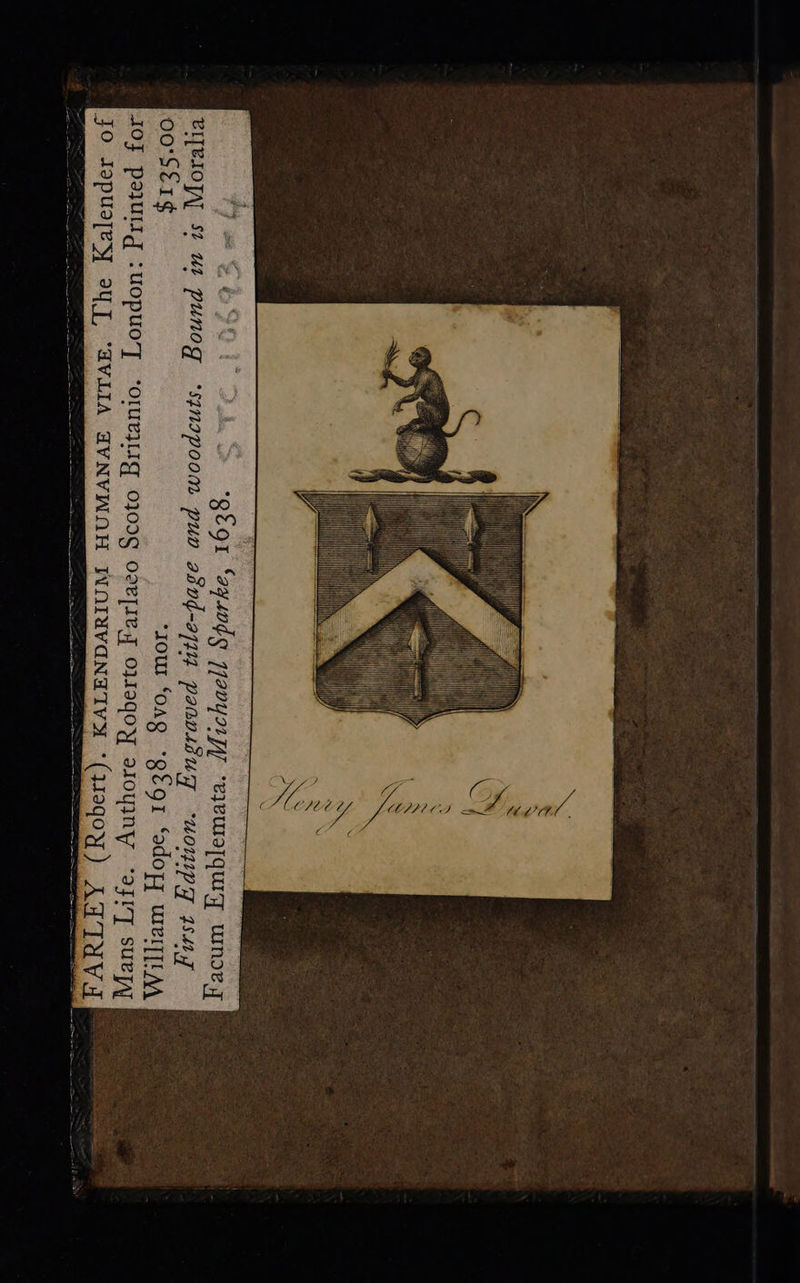 FARLEY (Robert). KALENDARIUM HUMANAE VITAE. The Kalender of
Mans Life. Authore Roberto Farlæo Scoto Britanio. London: Printed for
William Hope, 1638. 8vo, mor. $135.00
First Edition. Engraved title-page and woodcuts. Bound in is Moralia
Facum Emblemata. Michaell Sparke, 1638.
STC. 10693-4
Henry James Duval.